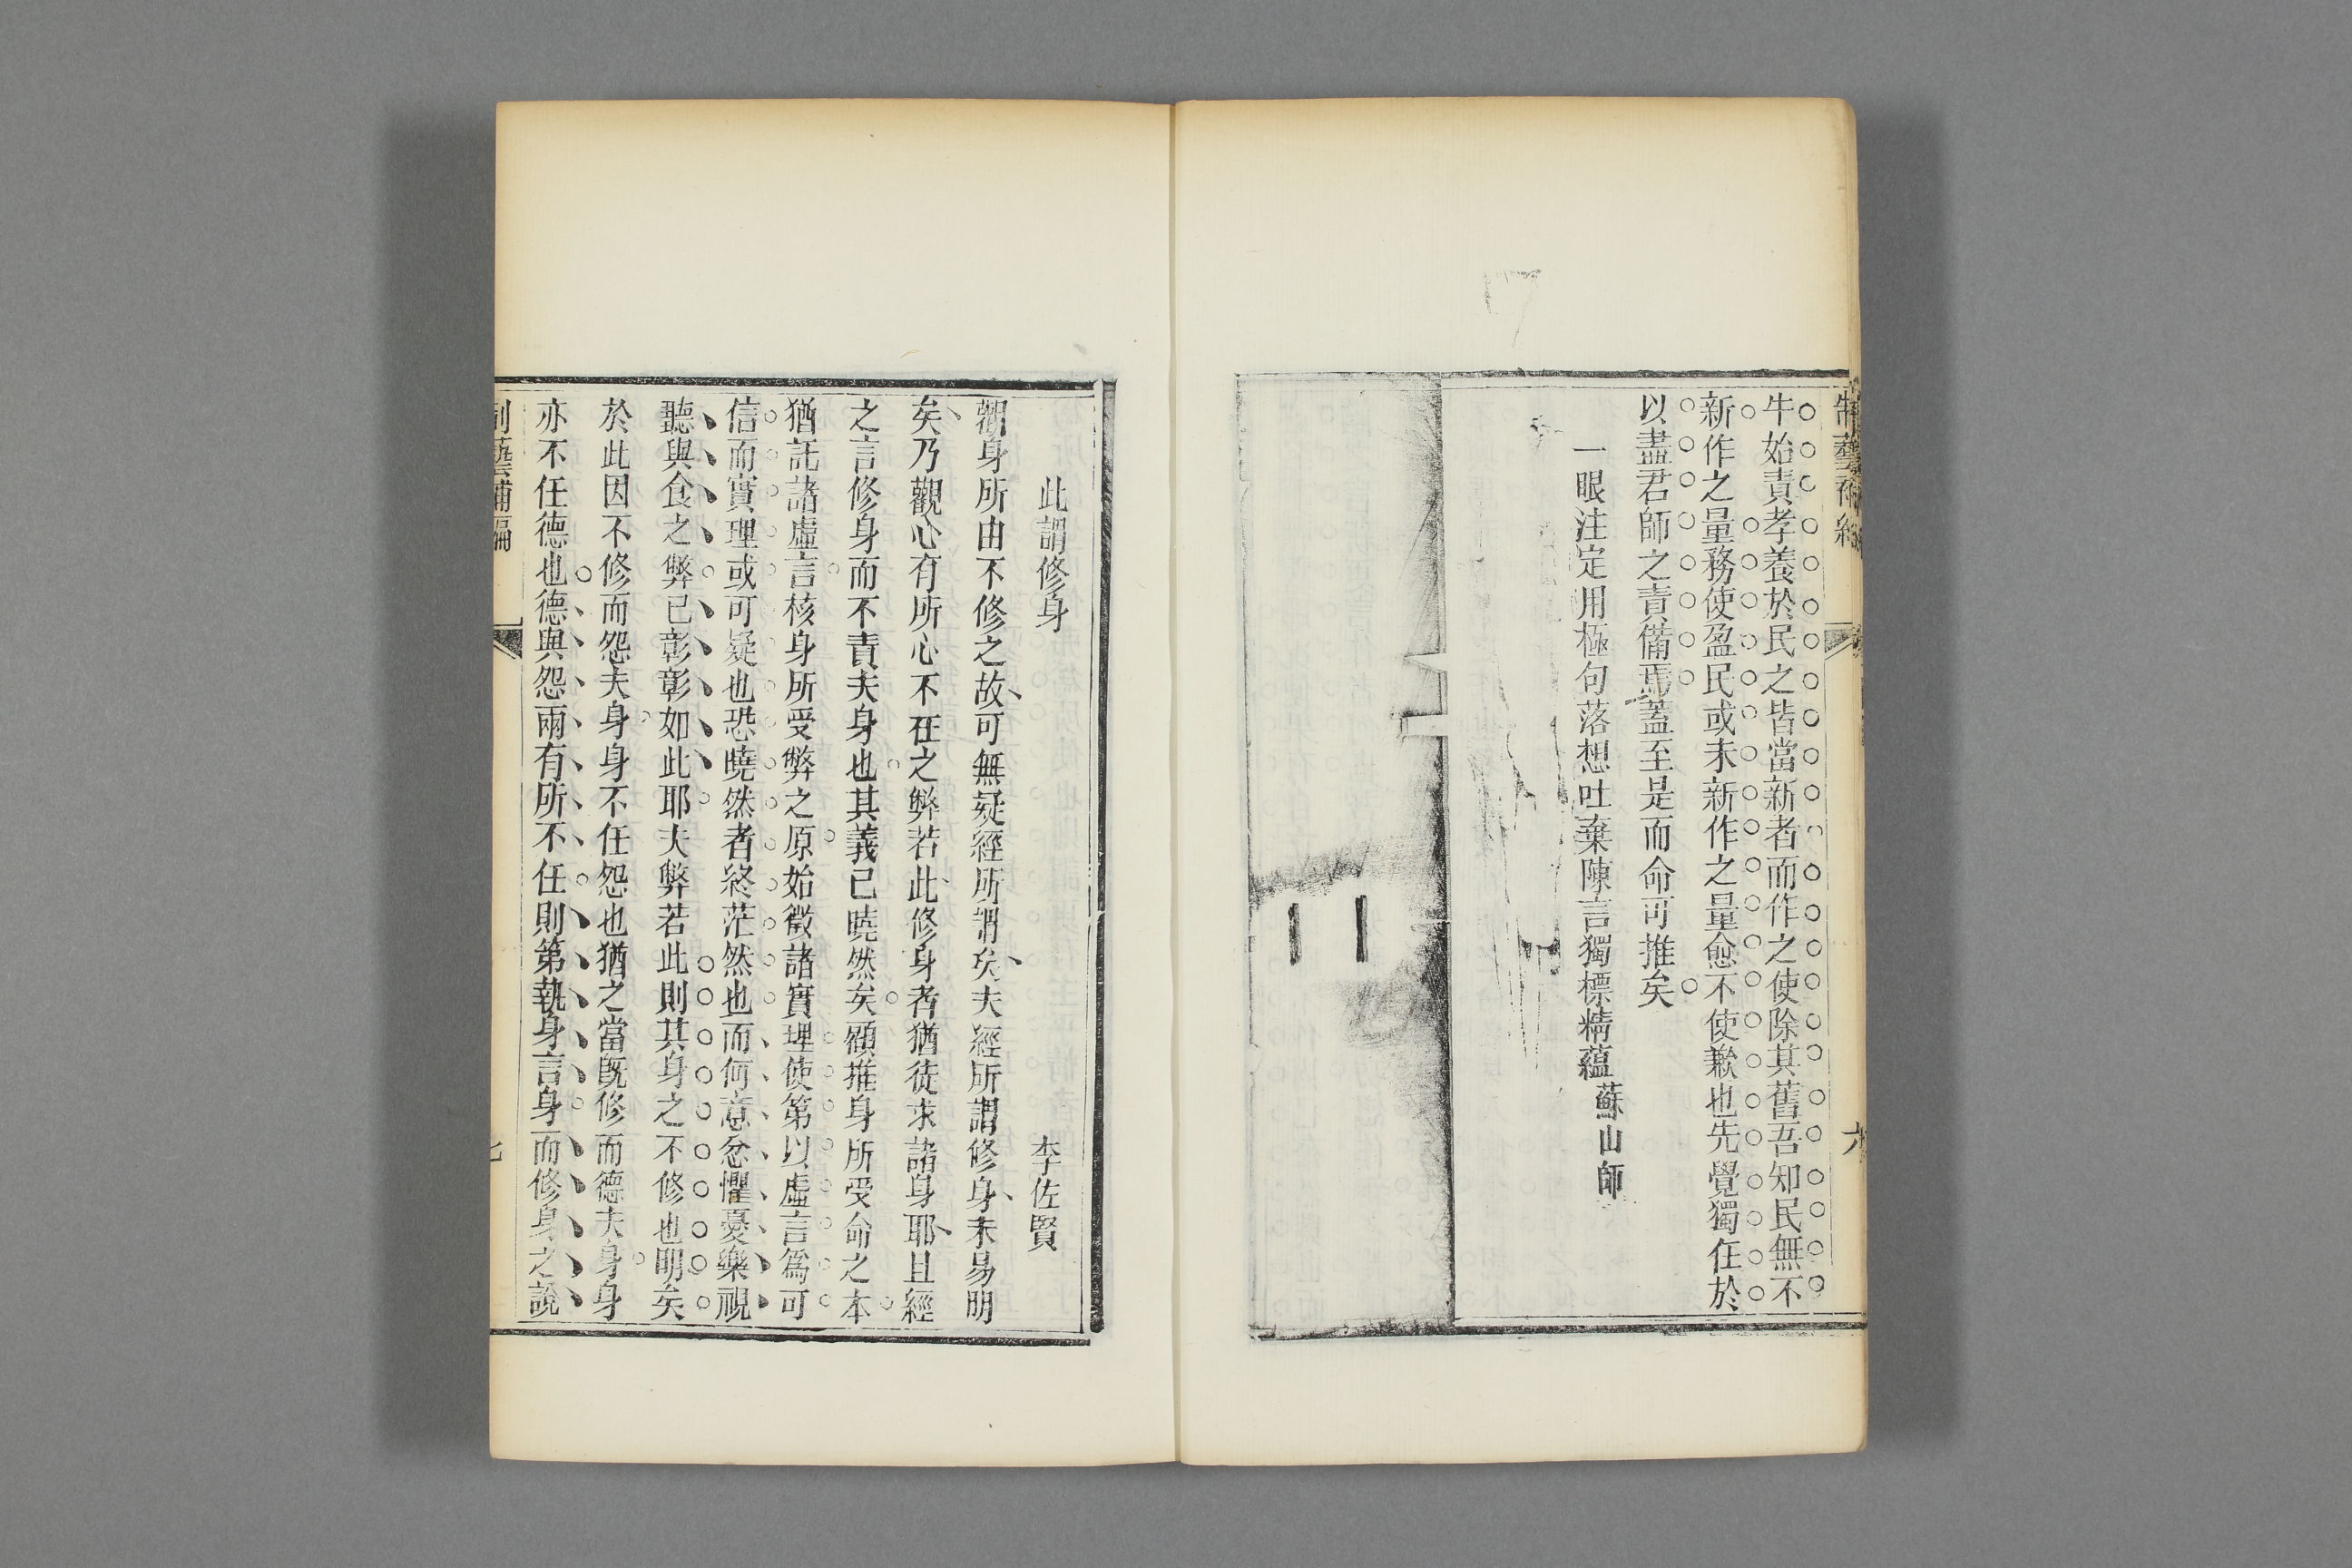 制藝補編
六
牛始責孝養於民之皆當新者而作之使除其舊吾知民無不
新作之量務使盈民或未新作之量愈不使歉也先覺獨任於
以盡君師之責備焉蓋至是而命可推矣
一眼注定用極句落想吐棄陳言獨標精蘊蘇山師
此謂修身
李佐賢
觀身所由不修之故可無疑經所謂矣夫經所謂修身未易明
矣乃觀心有所心不在之弊若此修身者猶徒求諸身耶且經
之言修身而不責夫身也其義已曉然矣顧推身所受命之本
猶託諸虛言核身所受弊之原始徵諸實理使第以虛言爲可
信而實理或可疑也恐曉然者終茫然也而何意忿懼憂樂視
聽與食之弊已彰彰如此耶夫弊若此則其身之不修也明矣
於此因不修而怨夫身身不任怨也猶之當旣修而德夫身身
亦不任德也德與怨兩有所不任則第執身言身而修身之說
制藝補編
七